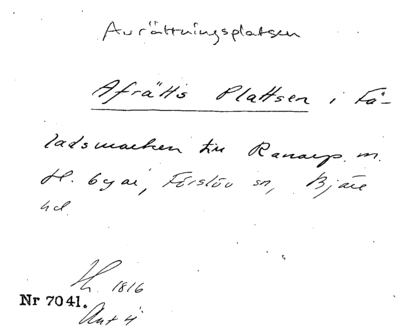 Avrättningsplatsen
Afrätts Plattsen i Få-
ladsmarken till Ranarp m.
fl. byar, Förslöv sn, Bjäre
hd.
1816
Nr 7041.